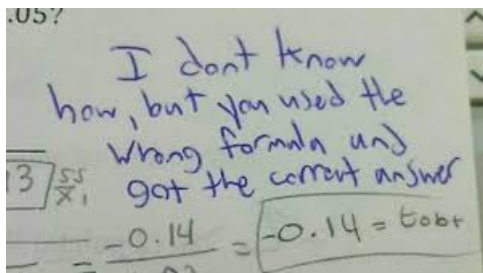 .05?
I dont know
how, but you used the
wrong formula and
got the correct answer
13 SS X1
= -0.14 = -0.14 = tobt